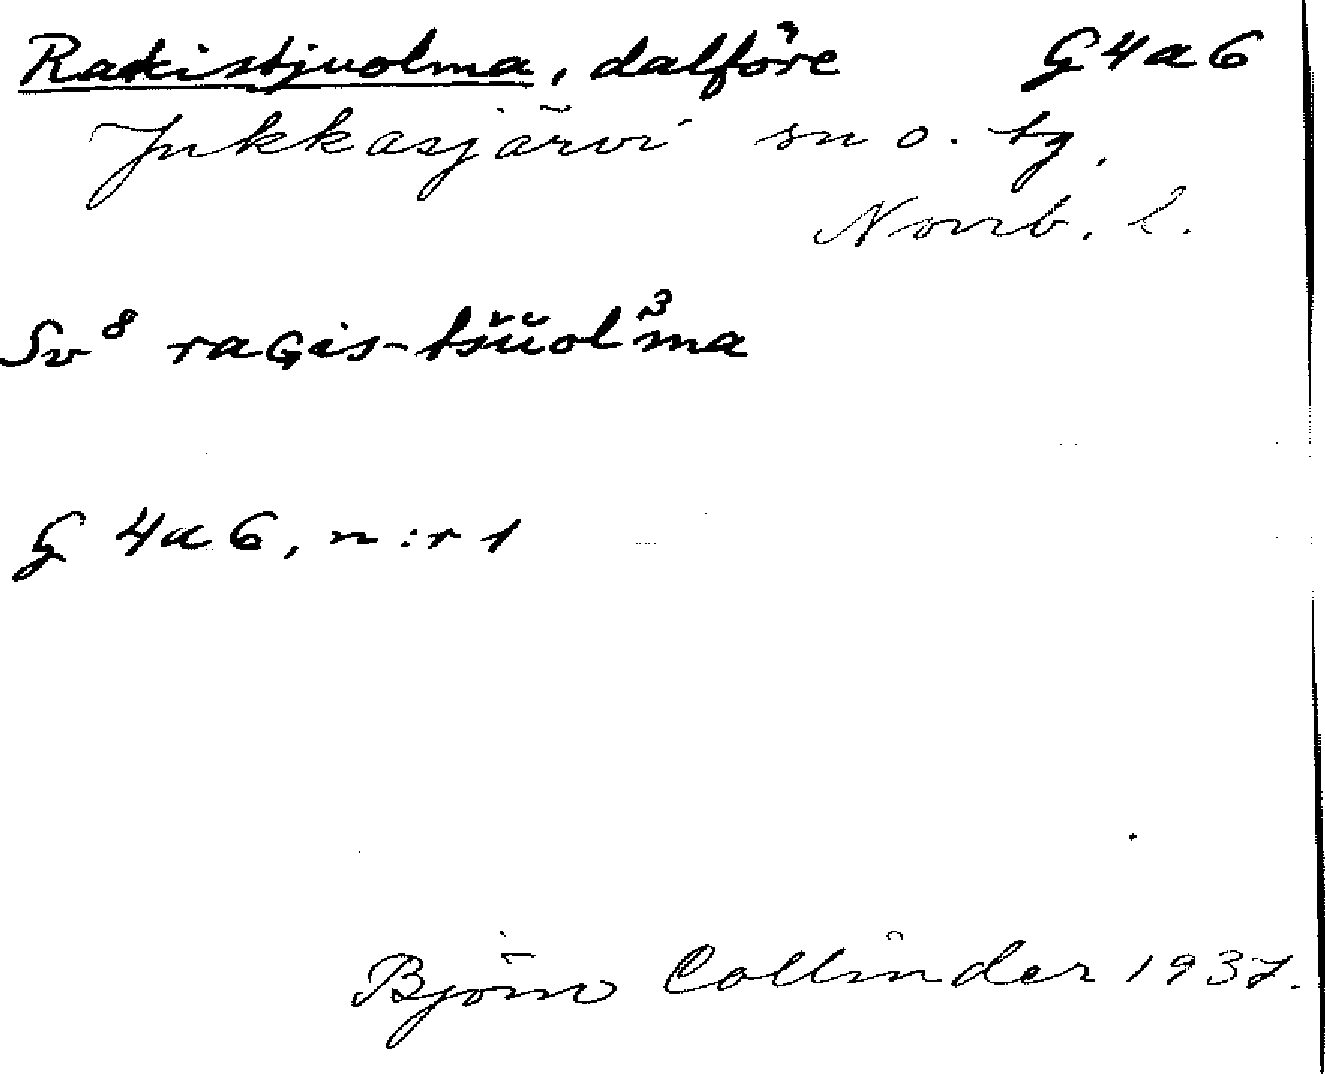 Rakistjuolma, dalföre G4a6
Jukkasjärvi sn o. tg.
Norrb. l.
Sv⁸ raGis-tšŭol³ma
G 4a6, n:r 1
Björn Collinder 1937.